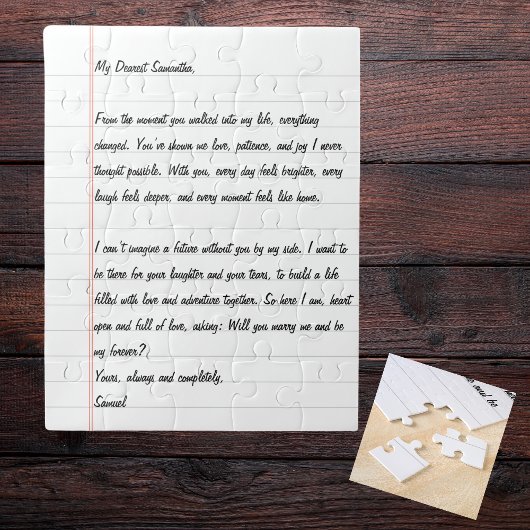 My Dearest Samantha,
From the moment you walked into my life, everything
changed. You've shown me love, patience, and joy I never
thought possible. With you, every day feels brighter, every
laugh feels deeper, and every moment feels like home.
I can't imagine a future without you by my side. I want to
be there for your laughter and your tears, to build a life
filled with love and adventure together. So here I am, heart
open and full of love, asking: Will you marry me and be
my forever?
Yours, always and completely,
Samuel
and be